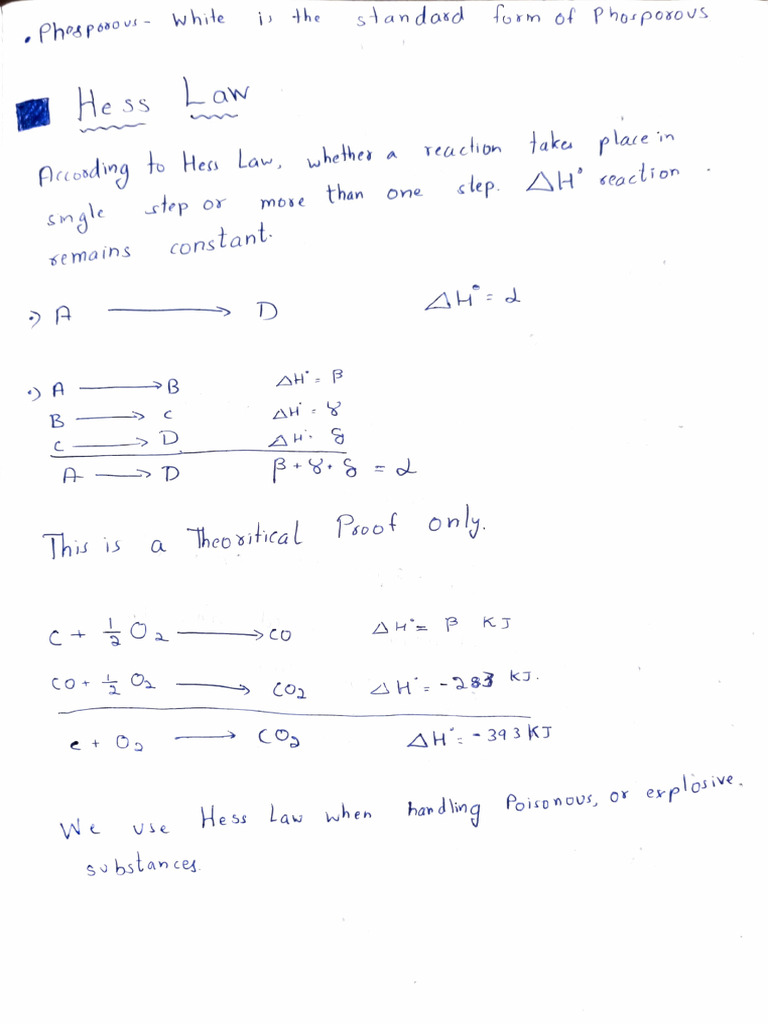 • Phosporous - White is the standard form of Phosporous
Hess Law
According to Hess Law, whether a reaction takes place in
single step or more than one step. ΔH° reaction .
remains constant.
•) A ⟶ D ΔH° = α
•) A ⟶ B ΔH° = β
B ⟶ C ΔH° = γ
C ⟶ D ΔH° δ
A ⟶ D β + γ + δ = α
This is a Theoritical Proof only.
C + 1/2 O2 ⟶ CO ΔH° = β KJ
CO + 1/2 O2 ⟶ CO2 ΔH° = -283 KJ.
C + O2 ⟶ CO2 ΔH° = -393 KJ
We use Hess Law when handling Poisonous, or explosive.
substances.